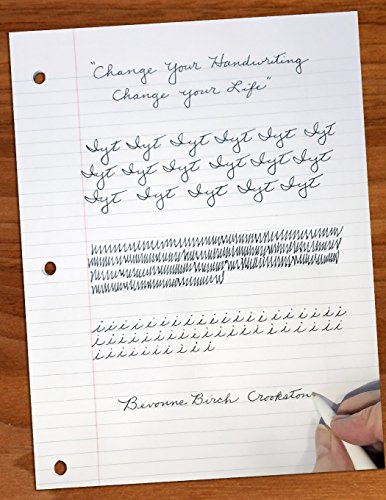 "Change Your Handwriting
Change your Life"
Iyt Iyt Iyt Iyt Iyt Iyt
Iyt Iyt Iyt Iyt Iyt Iyt
Iyt Iyt Iyt Iyt Iyt
i i i i i i i i i i i i i i i i i i i
i i i i i i i i i i i i i i i i i i i
i i i i i i i i i i
Bevonne Birch Crookston